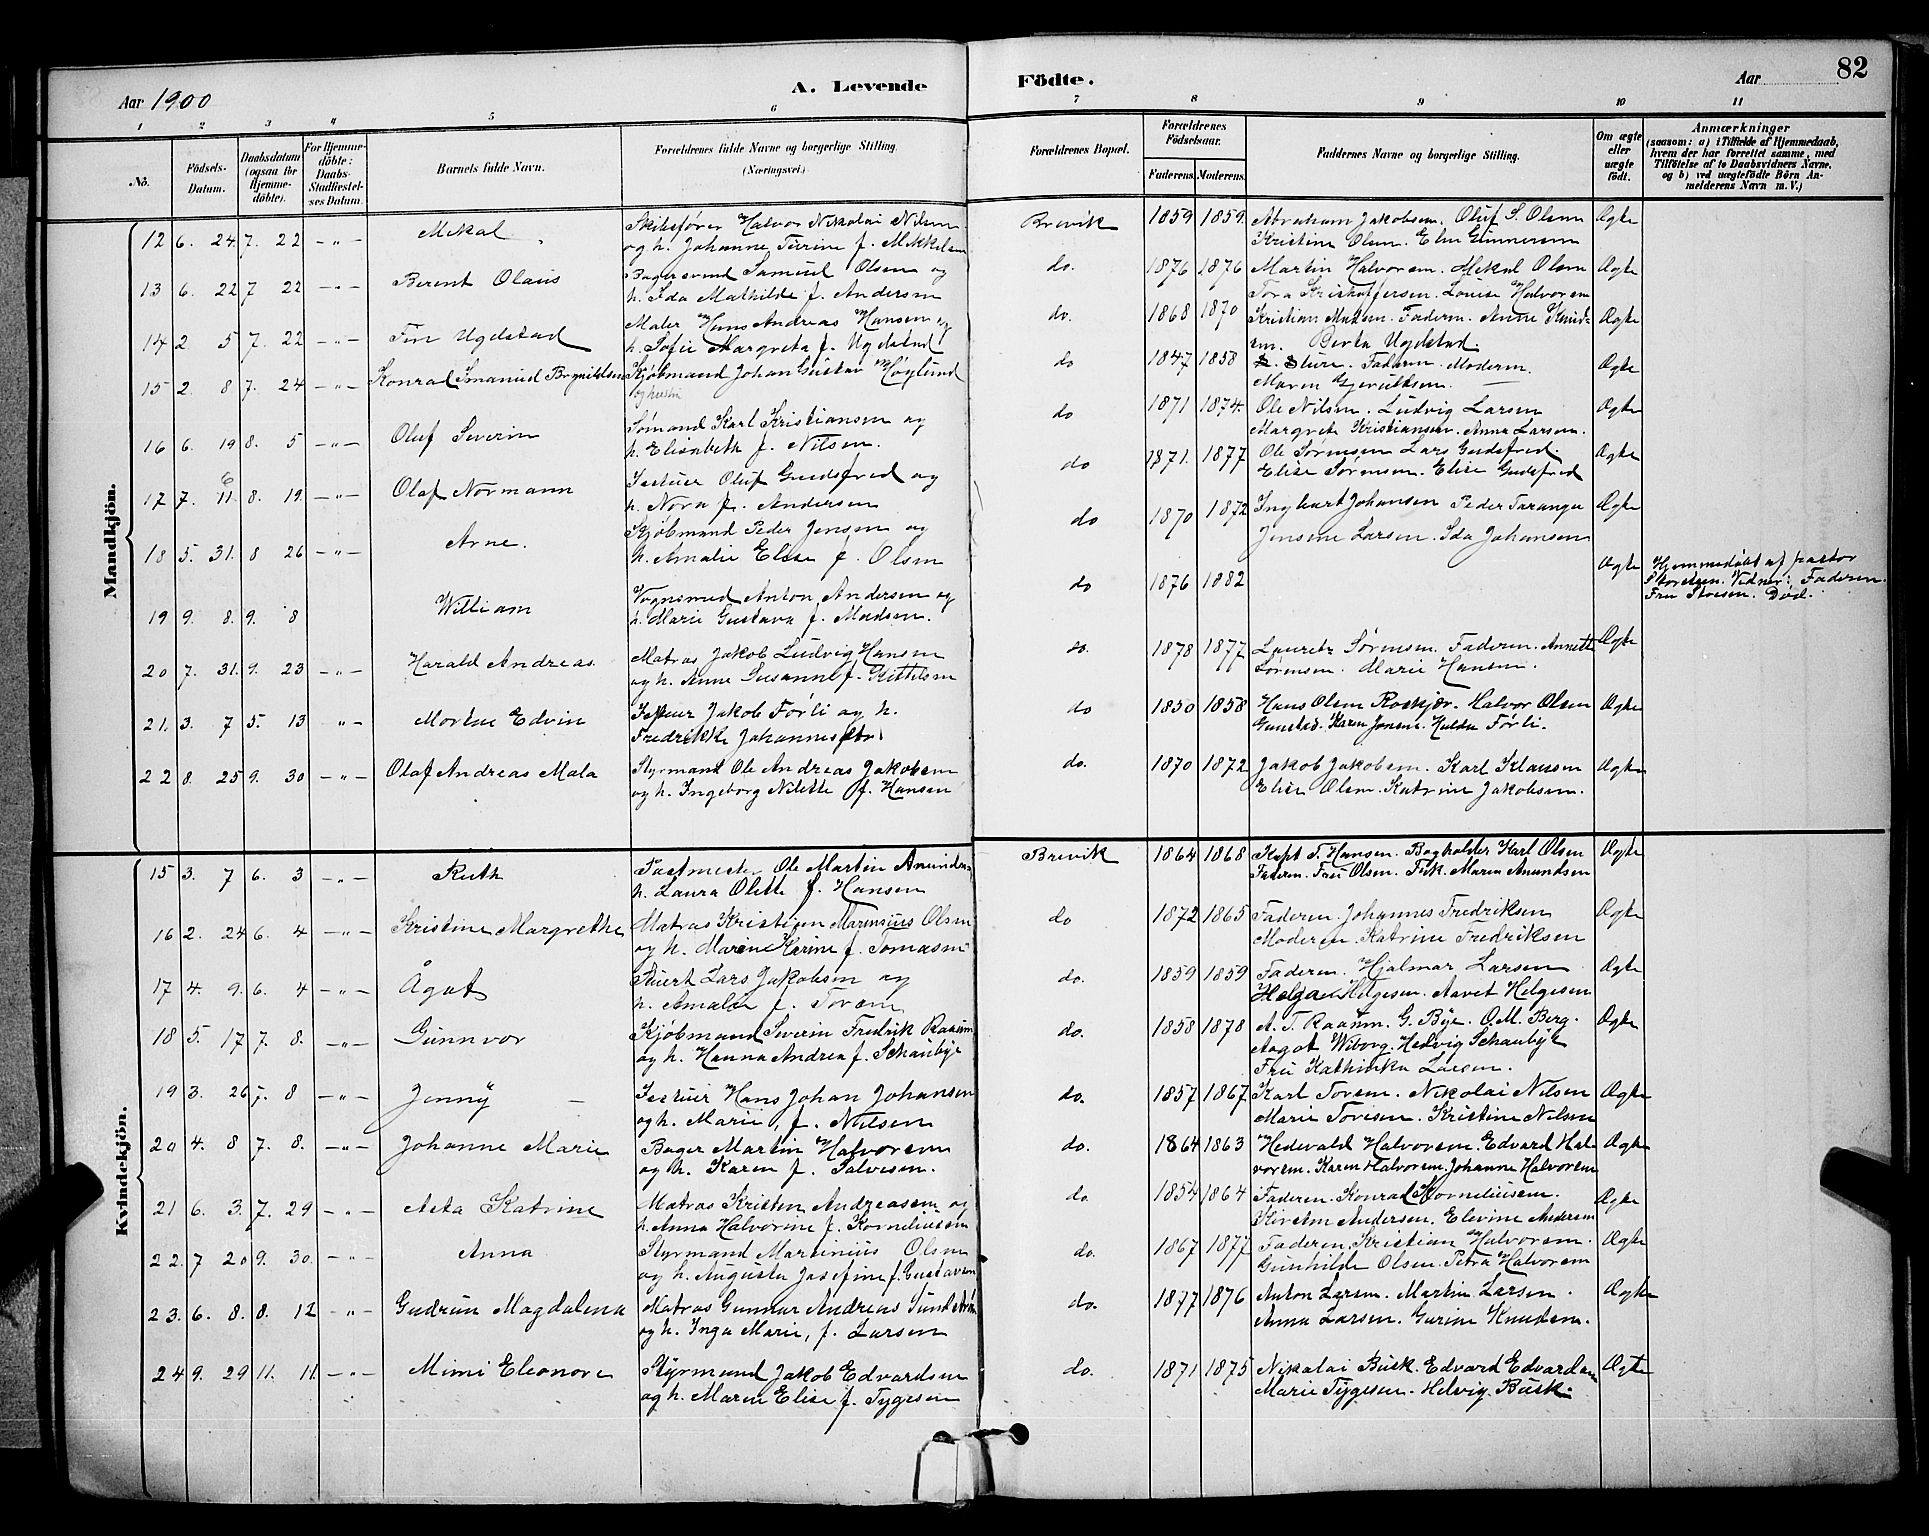 Aar 1900
A. Levende Födte.
Aar 82
1 2 3 4 5 6 7 8 9 10 11
No. Födsels-Datum. Daabsdatum (ogsaa for Hjemme-döbte). For Hjemme-döbte: Daabs-Stadfæstel-ses Datum. Barnets fulde Navn. Forældrenes fulde Navne og borgerlige Stilling. (Næringsvei.) Forældrenes Bopæl. Forældrenes Födselsaar. Faderens. Moderens. Faddernes Navne og borgerlige Stilling. Om ægte eller uægte födt. Anmærkninger (saasom: a) i Tilfælde af Hjemmedaab, hvem der har forrettet samme, med Tilföielse af to Daabsvidners Navne, og b) ved uægtefödte Börn An-melderens Navn m. V.)
Mandkjön.
12 6. 24. 7. 22 -„- Mikal Skibsfører Halvor Nikolai Nilsen Brevik 1859 1859. Abraham Jakobsen. Oluf S. Olsen Ægte
og h. Johanne Turine f. Mikkelsen Kristine Olsen. Elen Gunnersen
13 6. 22 7 22 -„- Berent Olaus Bagersvend Samuel Olsen og do. 1876 1876 Martin Halvorsen. Mikal Olsen Ægte
h. Ida Mathilde f. Andersen Tora Kristoffersen. Louise Halvorsen
14 2 5 7. 22 -„- Finn Ugdstad Maler Hans Andreas Hansen og do. 1868 1870 Kristian Madsen. Faderen. Anne Knud- Ægte
h. Sofie Margreta f. Ugdstad sen. Berta Ugdstad.
15 2. 8 7. 24 -„- Konrad Emanuel Brynildsen Kjøbmand Johan Gustav Höglund do 1847 1858 Sture. Faderen. Moderen. Ægte
og hustru Maren Gjerulksen.
16 6. 19 8. 5 -„- Oluf Severin Sømand Karl Kristiansen og do 1871 1874. Ole Nilsen. Ludvig Larsen Ægte
h. Elisabeth f. Nilsen. Margrete Kristiansen. Anna Larsen.
17 7. 11. 8. 19. -„- Olaf Normann Isstuer Oluf Gudsfred og do 1871. 1877 Ole Sørensen Lars Gudsfred. Ægte
h. Nora f. Andersen Elise Sørensen. Elise Gudsfred
18 5. 31. 8 26 -„- Arne. Kjøbmand Peder Jensen og do 1870 1872 Ingbart Johansen Peder Taranger Ægte
h. Amalie Elise f. Olsen Jensine Larsen. Ida Johansen
19 9. 8. 9. 8 William Vognsmed Anton Andersen og do 1876 1882 Ægte Hjemmedøbt af pastor
h. Marie Gustava f. Madsen. Storesen. Vidner: Faderen.
Fru Storesen. Død.
20 7. 31. 9. 23 -„- Harald Andreas Matros Jakob Ludvig Hansen do. 1878 1877 Lauritz Sørensen. Faderen. Annette Ægte
og h. Anne Susanne f. Kittelsen Sørensen. Marie Hansen.
21. 3. 7 5. 13 -„- Morten Edvin Isstuer Jakob Førli og h. do 1850 1858 Hans Olsen Roskjær. Halvor Olsen Ægte
Fredrikke Johannesdtr Gunstad. Karen Jensen. Hulda Førli.
22 8. 25 9. 30 -„- Olaf Andreas Mala Styrmand Ole Andreas Jakobsen do. 1870 1872 Jakob Jakobsen. Karl Klausen Ægte
og h. Ingeborg Nilette f. Hansen Elise Olsen. Katrine Jakobsen.
Kvindekjön.
15 3. 7 6. 3 -„- Ruth Postmester Ole Martin Amundsen Brevik 1864 1868 Kapt T. Hansen. Bogholder Karl Olsen Ægte
h. Laura Olette f. Hansen Faderen. Fru Olsen. Frk. Maren Amundsen
16 2. 24 6. 4 -„- Kristine Margrethe Matros Kristian Marensius Olsen do 1872 1865 Faderen. Johannes Fredriksen Ægte
og h. Maren Karine f. Tomasen Moderen. Katrine Fredriksen
17 4. 9. 6. 4 -„- Ågot Stuert Lars Jakobsen og do. 1859 1859 Faderen. Hjalmar Larsen Ægte
h. Amalie f. Toresen Helga Helgesen. Aavet Helgesen
18 5. 17 7. 8. -„- Gunnvor Kjøbmand Severin Fredrik Raaum do. 1858 1878 A. T. Raaum. G. Bye. O. M. Berg. Ægte
og h. Hanna Andrea f. Schaubye Aagot Wiborg. Hedvig Schaubye
Fru Kathinka Larsen.
19 3. 26 7. 8 -„- Jenny Isstuer Hans Johan Johansen do. 1857 1867 Karl Toresen. Nikolai Nilsen Ægte
og h. Marie, f. Nilsen Marie Toresen. Kristine Nilsen
20 4. 8 7. 8. -„- Johanne Marie Bager Martin Halvorsen do. 1864 1863 Hedevald Halvorsen. Edvard Hal Ægte
og h. Karen f. Salvesen. vorsen. Karen Halvorsen. Johanne Halvorsen
21 6. 3. 7. 29 -„- Asta Katrine Matros Kristen Andreasen og do. 1854 1864 Faderen. Konrad Korneliusen. Ægte
h. Anna Halvorine f. Korneliusen Kirsten Andersen. Elevine Andersen
22. 7 20 9. 30. -„- Anna Styrmand Martinius Olsen do. 1867 1877 Faderen. Kristian Halvorsen. Ægte
og h. Augusta Josefine f. Gustavsen Gunhilde Olsen. Petra Halvorsen
23. 6. 8. 8. 12 -„- Gudrun Magdalena Matros Gunnar Andreas Sundström do. 1877 1876 Anton Larsen. Martin Larsen. Ægte
og h. Inga Marie, f. Larsen Anna Larsen. Gurine Knudsen.
24 9. 29 11. 11. -„- Mimi Eleonore Styrmand Jakob Edvardsen do. 1871 1875 Nikolai Busk. Edvard Edvardsen Ægte
og h. Maren Elise f. Tygesen Marie Tygesen. Helvig Busk.